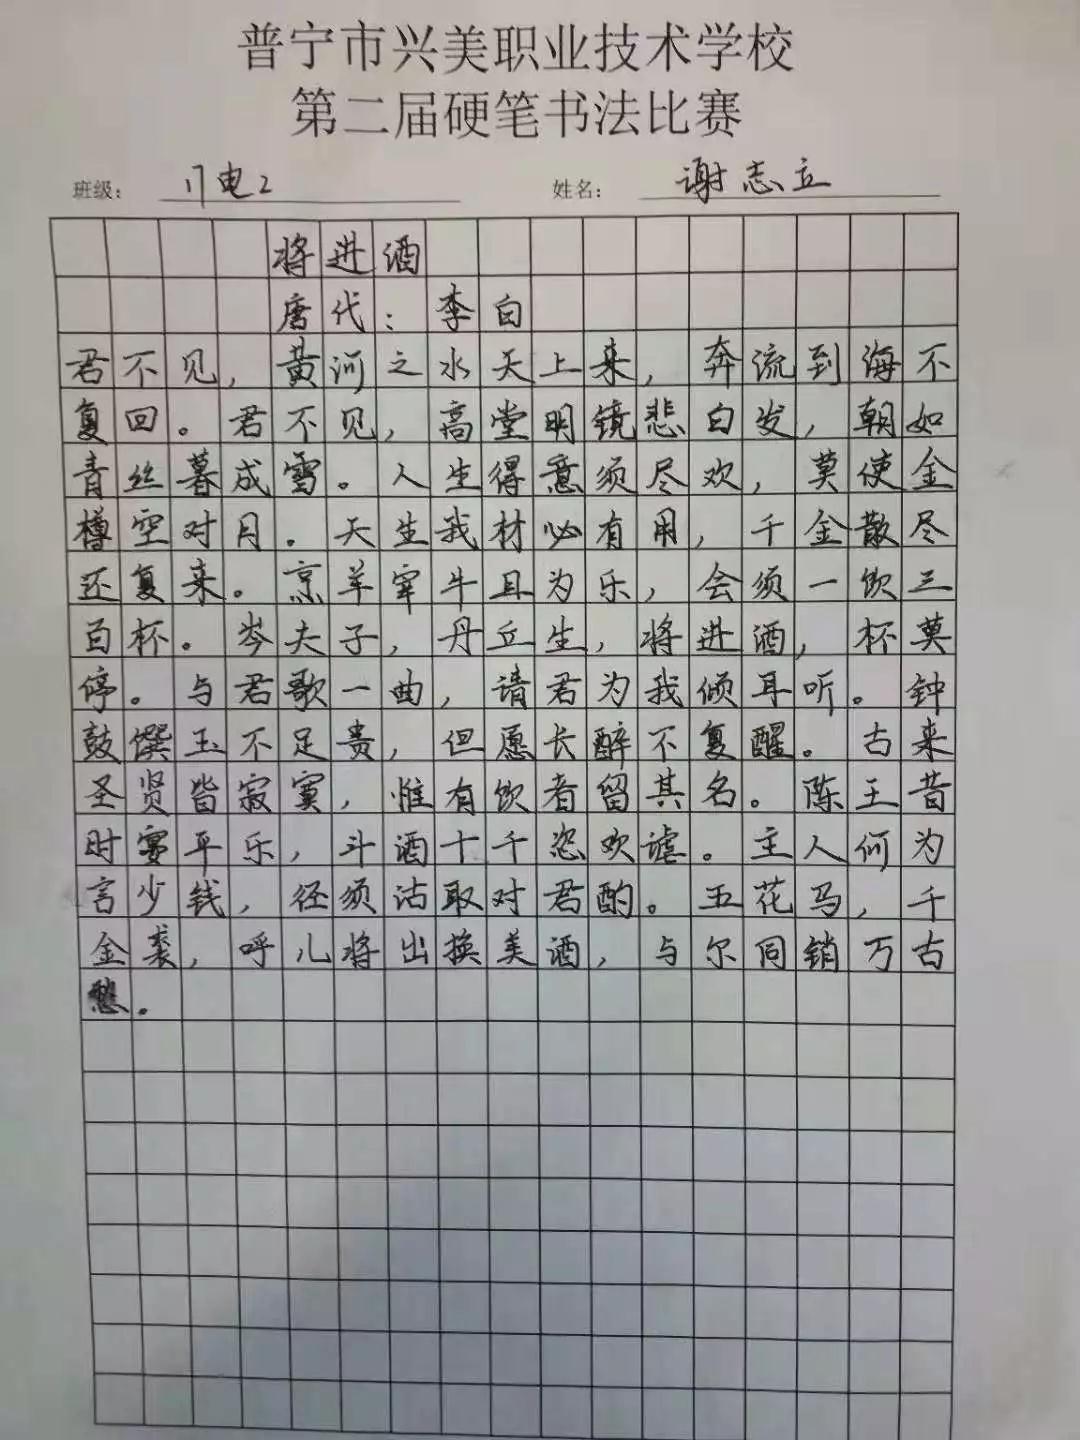 普宁市兴美职业技术学校
第二届硬笔书法比赛
班级： 电2 姓名： 谢志立
将进酒
唐代：李白
君不见，黄河之水天上来，奔流到海不
复回。君不见，高堂明镜悲白发，朝如
青丝暮成雪。人生得意须尽欢，莫使金
樽空对月。天生我材必有用，千金散尽
还复来。烹羊宰牛且为乐，会须一饮三
百杯。岑夫子，丹丘生，将进酒，杯莫
停。与君歌一曲，请君为我倾耳听。钟
鼓馔玉不足贵，但愿长醉不复醒。古来
圣贤皆寂寞，惟有饮者留其名。陈王昔
时宴平乐，斗酒十千恣欢谑。主人何为
言少钱，径须沽取对君酌。五花马，千
金裘，呼儿将出换美酒，与尔同销万古
愁。